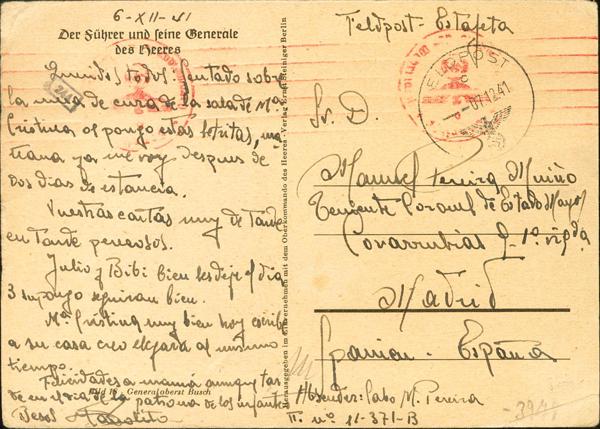 6-XII-41
Der Führer und seine Generale
des Heeres
Queridos todos: Sentado sobre
la mesa de cura de la sala de Mª
Cristina os pongo estas letritas, ma
ñana ya me voy despues de
dos dias de estancia.
Vuestras cartas muy de tarde
en tarde perezosos.
Julio y Bibi bien les deje el dia
3 supongo seguiran bien.
Mª Cristina muy bien hoy escribe
a su casa creo llegará al mismo
tiempo.
Felicidades a mamá aunque tar
de en el dia de la patrona de los infantes
Bild 16 Generaloberst Busch
Besos
Herausgegeben im Einvernehmen mit dem Oberkommando des Heeres - Verlag Ernst Steiniger Berlin
Feldpost - Estafeta
FELDPOST
-7.12.41
Sr. D.
Manuel Pereira Muiño
Teniente Coronel de Estado Mayor
Covarrubias 9-1º izqda
Madrid
Spanien - España
Absender: Cabo M. Pereira
F. nº 11-371-B